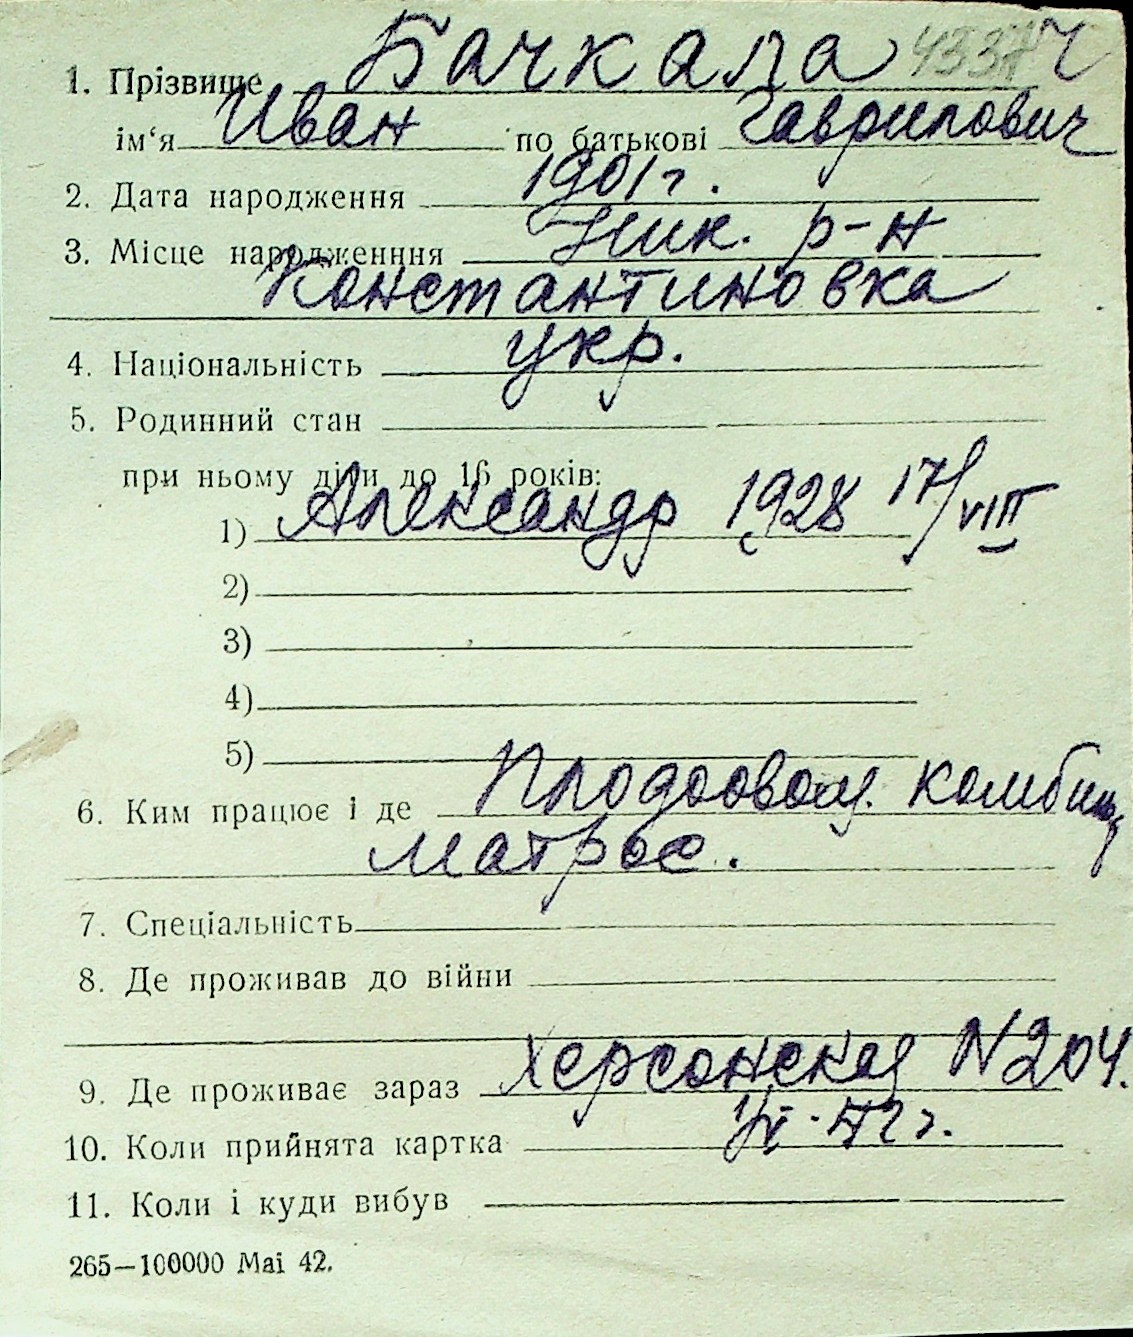 1. Прізвище Бачкала 4337 Ч
ім‘я Иван по батькові Гаврилович
2. Дата народження 1901 г.
3. Місце народженння Ник. р-н
Константиновка
4. Національність укр.
5. Родинний стан
при ньому діти до 16 років:
1) Александр 1928 17/VIII
2)
3)
4)
5)
6. Ким працює і де комбинат
матрос.
7. Спеціальність
8. Де проживав до війни
9. Де проживає зараз Херсонская N 204.
10. Коли прийнята картка
11. Коли і куди вибув
265—100000 Mai 42.